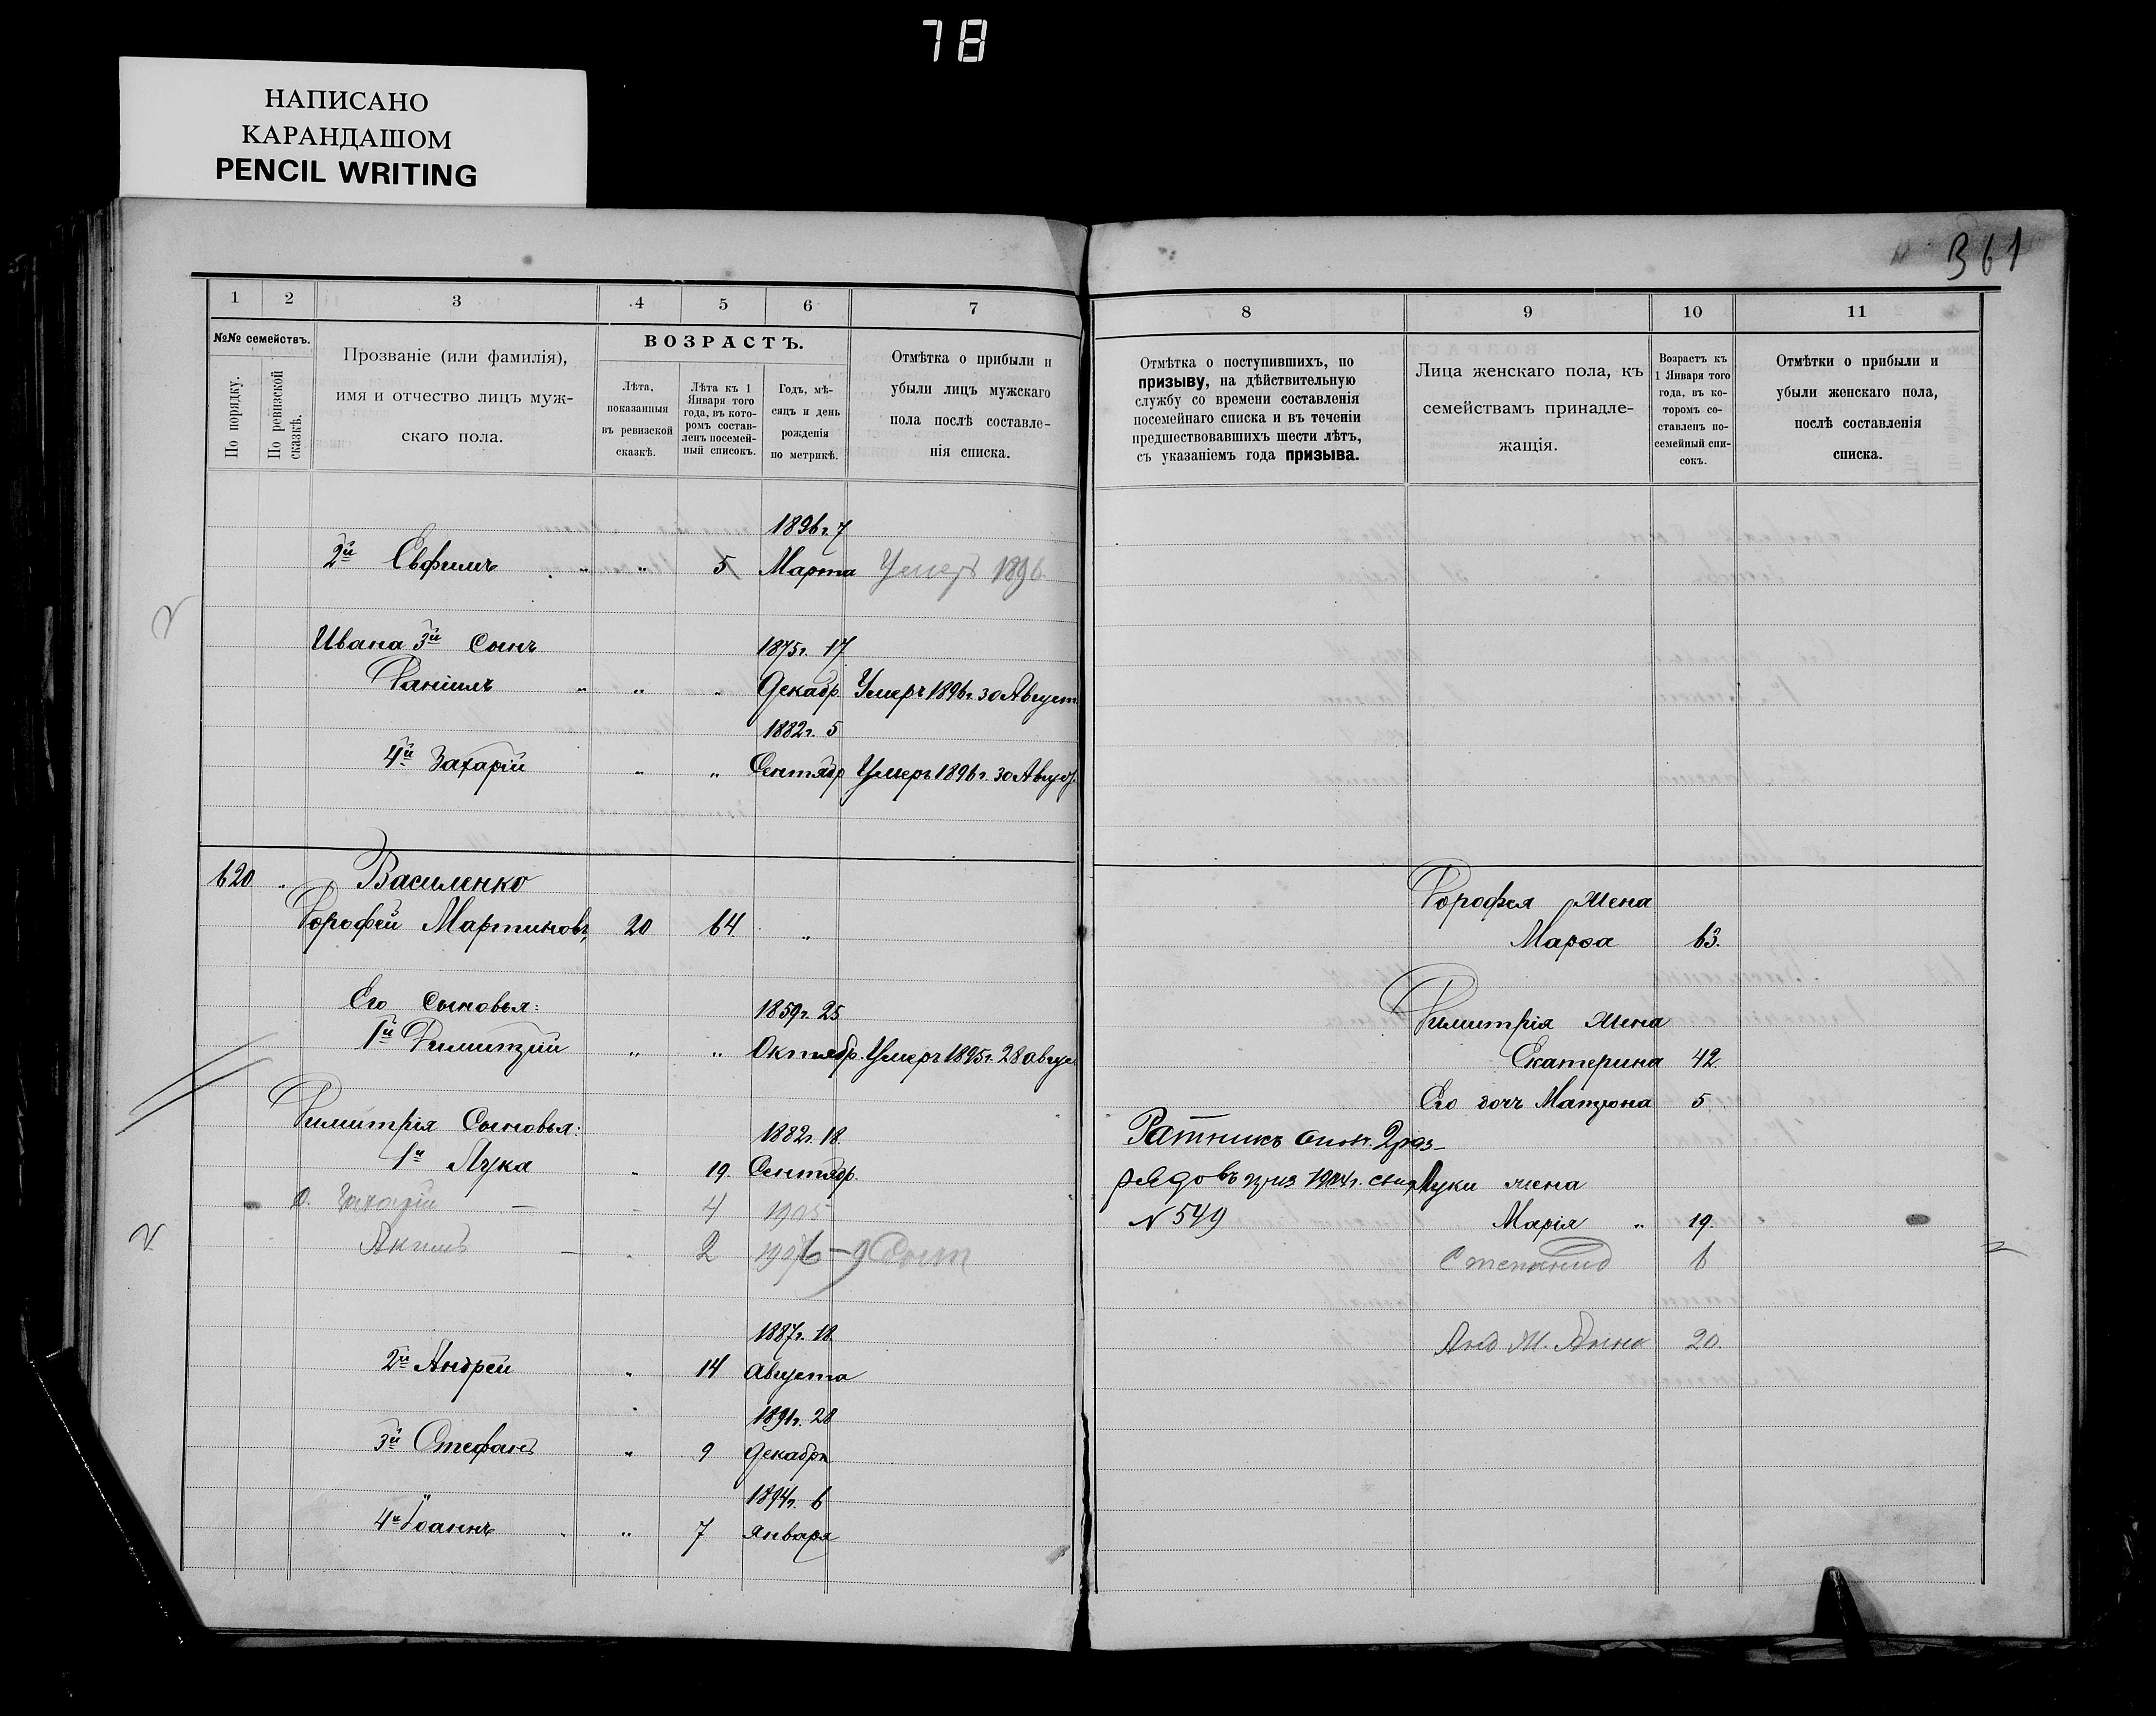 78
НАПИСАНО
КАРАНДАШОМ
PENCIL WRITING
361
1 2 3 4 5 6 7
№№ семействъ.
По порядку.
По ревизской сказкѣ.
Прозваніе (или фамилія),
имя и отчество лицъ муж-
скаго пола.
ВОЗРАСТЪ.
Лѣта,
показанныя
въ ревизской
сказкѣ.
Лѣта къ 1
Января того
года, въ кото-
ромъ состав-
ленъ посемей-
ный списокъ.
Годъ, мѣ-
сяцъ и день
рожденія
по метрикѣ.
Отмѣтка о прибыли и
убыли лицъ мужскаго
пола послѣ составле-
нія списка.
1896г. 7
2й Евфимъ " " 5 Марта Умеръ 1896.
Ивана 3й Сынъ 1875г. 17
Даніилъ " " " Декабр. Умеръ 1896г. 30 Август.
1882г. 5
4й Захарій " " Сентябр Умеръ 1896г. 30 Август.
620 " Василенко
Дорофей Мартиновъ, 20 64 "
Его Сыновья: 1859г. 25
1й Димитрій " " Октябр. Умеръ 1895г. 28 авгус.
Димитрія Сыновья: 1882г. 18
1й Лука " 19. Сентябр.
Захарій — " 4 1905
Акимъ — " 2
1887г. 18
2й Андрей " 14 Августа
1891г. 28
3й Стефанъ " 9 Декабря
1894г. 6
4й Іоаннъ " " 7 Января
8 9 10 11
Отмѣтка о поступившихъ, по
призыву, на дѣйствительную
службу со времени составленія
посемейнаго списка и въ теченіи
предшествовавшихъ шести лѣтъ,
съ указаніемъ года призыва.
Лица женскаго пола, къ
семействамъ принадле-
жащія.
Возрастъ къ
1 Января того
года, въ ко-
торомъ со-
ставленъ по-
семейный спи-
сокъ.
Отмѣтки о прибыли и
убыли женскаго пола,
послѣ составленія
списка.
Дорофея Жена
Марѳа 63.
Димитрія Жена
Екатерина 42
Его дочь Матрона 5
Ратникъ опол. 2 раз-
рядовъ 1904г.
Луки жена
№ 549 Марія " 19.
Степанид 6
Анд Ж. Анна 20.